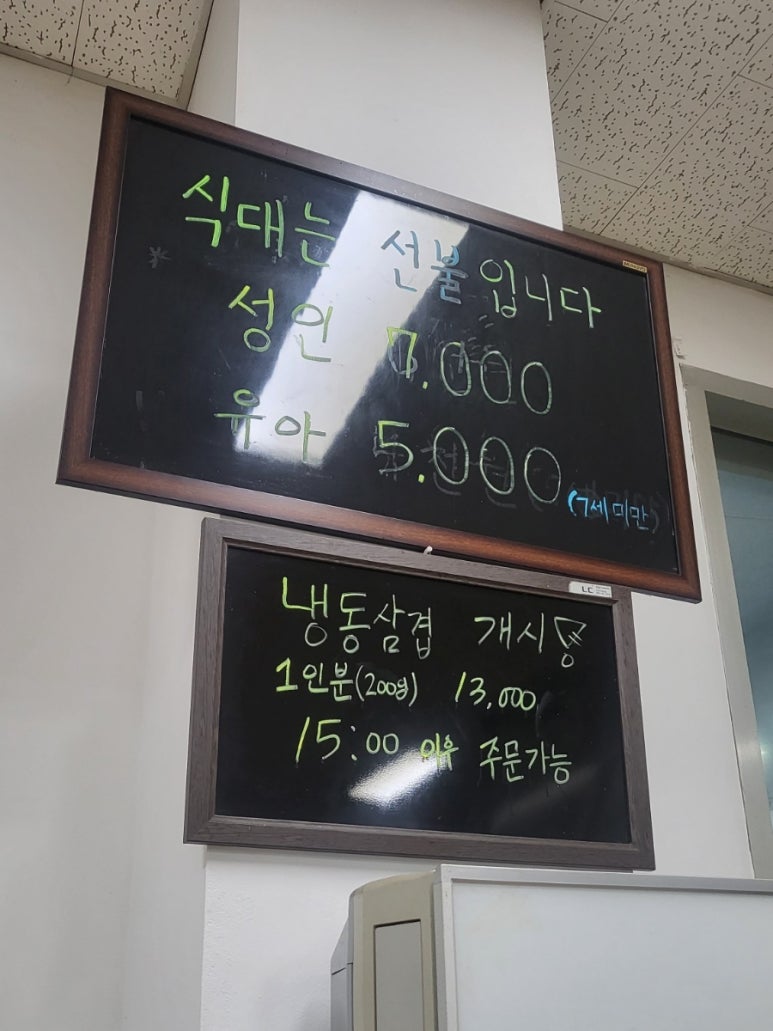 식대는 선불입니다
성인 7.000
유아 5.000
(7세 미만)
냉동삼겹 개시
1인분(200g) 13,000
15:00 이후 주문가능